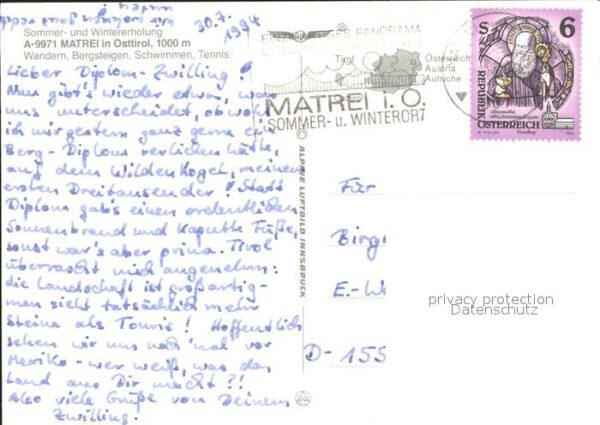 30.7.1994
Sommer- und Wintererholung
A-9971 MATREI in Osttirol, 1000 m
Wandern, Bergsteigen, Schwimmen, Tennis
Lieber Diplom-Zwilling!
Nun gibt's wieder etwas, was
uns unterscheidet, obwohl
ich mir gestern ganz gerne ein
Berg-Diplom verliehen hätte,
auf dem Wilden Kogel, meinem
ersten Dreitausender! Statt
Diplom gab's einen ordentlichen
Sonnenbrand und kaputte Füße,
sonst war's aber prima. Tirol
überrascht mich angenehm:
die Landschaft ist großartig -
man sieht tatsächlich mehr
Steine als Touris! Hoffentlich
sehen wir uns noch 'mal vor
Mexiko - wer weiß, was das
Land aus Dir macht?!
Also viele Grüße von Deinem
Zwilling.
ALPINE LUFTBILD INNSBRUCK
PANORAMA
Tirol
Österreich
Austria
Autriche
MATREI i. O.
SOMMER- u. WINTERORT
S 6
REPUBLIK
ÖSTERREICH
Für
Birgi
E.-W
D-155
privacy protection
Datenschutz